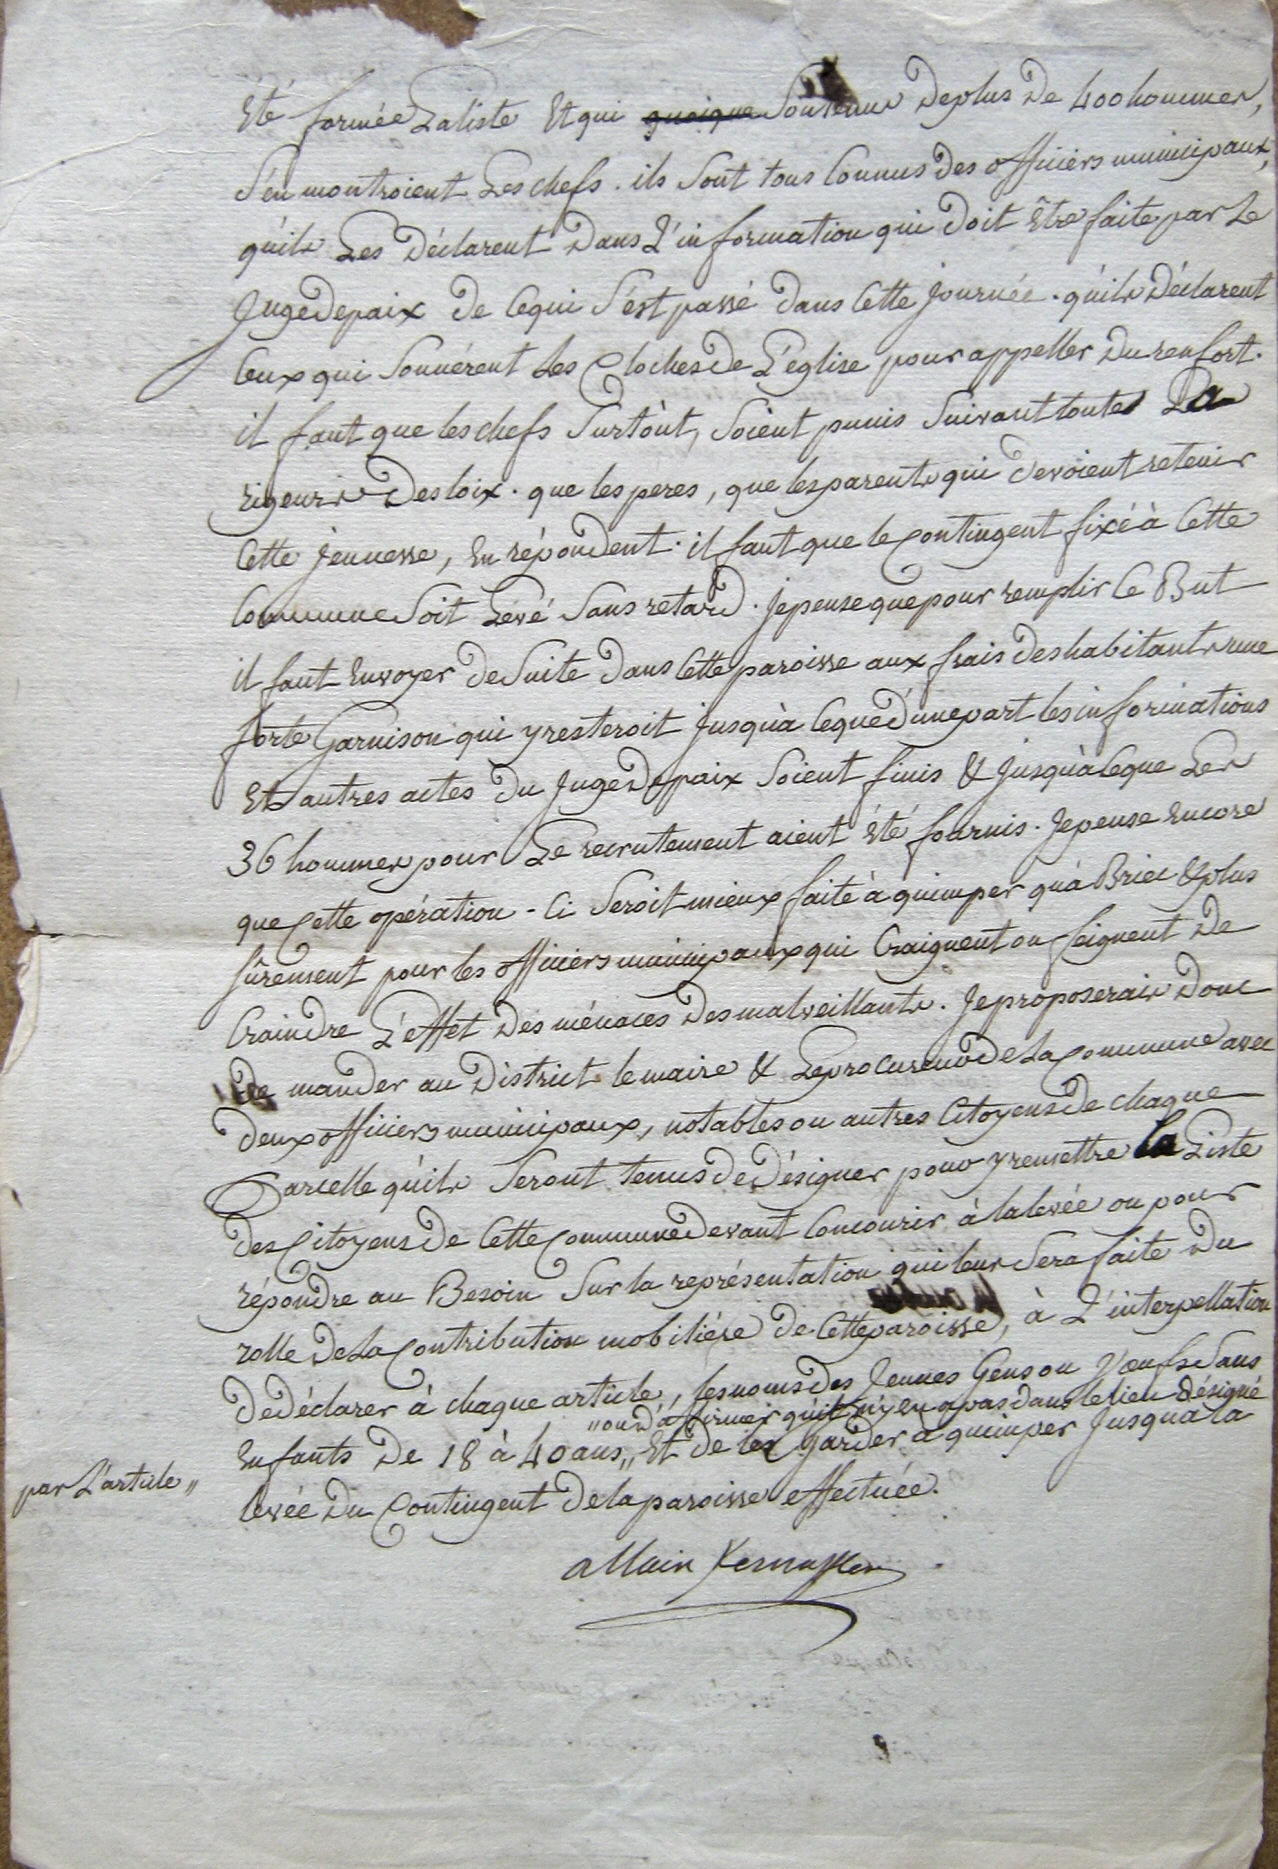 été formée La liste Et qui quoique Soutenus De plus De 400 hommes,
S'en montroient Les chefs. ils Sont tous Connus Des officiers municipaux,
qu'ils Les Déclarent Dans L'information qui Doit Être faite par Le
Juge De paix de Ce qui S'est passé dans Cette Journée. qu'ils Déclarent
Ceux qui Sonnérent Les Cloches De L'eglise pour appeller Du renfort.
il faut que les chefs Surtout, Soient punis Suivant toute La
rigeur Des loix. que les peres, que les parents qui devoient retenir
Cette Jeunesse, En répondent. il faut que le Contingent fixé à Cette
Commune Soit Levé Sans retard. Je pense que pour remplir Ce But
il faut Envoyer De Suite Dans Cette paroisse aux frais Des habitants une
forte Garnison qui y resteroit Jusqu'à Ce que D'une part les informations
Et autres actes Du Juge De paix Soient finis & Jusqu'à Ce que Les
36 hommes pour Le recrutement aient été fournis. Je pense Encore
que Cette opération-Ci Seroit mieux faite à quimper qu'à Briec & plus
Sûrement pour les officiers municipaux qui Craignent ou feignent De
Craindre L'effet Des ménaces Des malveillants. Je proposerais Donc
De mander au District le maire & Le procureur De La Commune avec
Deux officiers municipaux, notables ou autres Citoyens De chaque
Parcelle qu'ils Seront tenus De Désigner pour y remettre la Liste
Des Citoyens De Cette Commune Devant Concourir à la levée ou pour
répondre au Besoin Sur la représentation qui leur Sera faite Du
rolle De La Contribution mobiliére De Cette paroisse, à L'interpellation
De Déclarer à chaque article, les noms Des Jeunes Gens ou Veufs Sans
"ou D'affirmer qu'il n'y En a pas Dans le lieu Désigné
Enfants De 18 à 40 ans,, Et De les Garder à quimper Jusqu'à la
par L'article "
levée Du Contingent De la paroisse effectuée.
allain